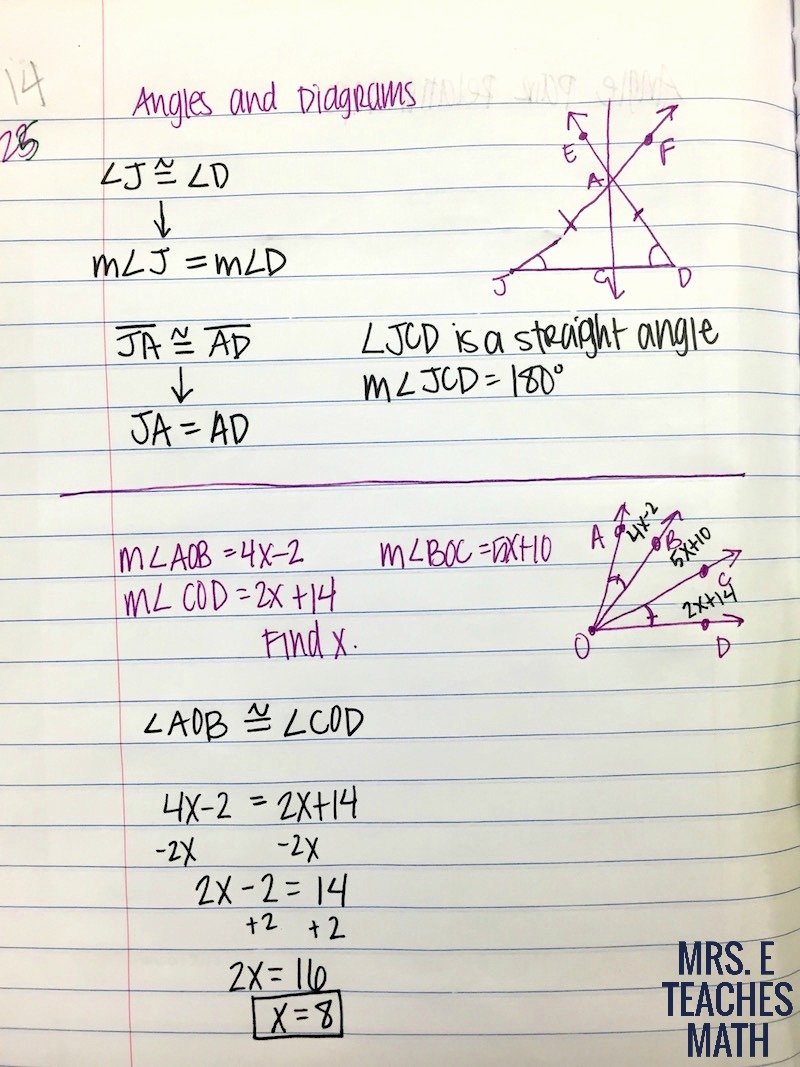 14
25
Angles and Diagrams
∠J ≅ ∠D
↓
m∠J = m∠D
E
F
A
J
C
D
JA ≅ AD
↓
JA = AD
∠JCD is a straight angle
m∠JCD = 180°
m∠AOB = 4x-2
m∠BOC = 5x+10
m∠COD = 2x+14
Find x.
A
4x-2
B
5x+10
C
2x+14
O
D
∠AOB ≅ ∠COD
4x-2 = 2x+14
-2x -2x
2x-2 = 14
+2 +2
2x = 16
x = 8
MRS. E
TEACHES
MATH